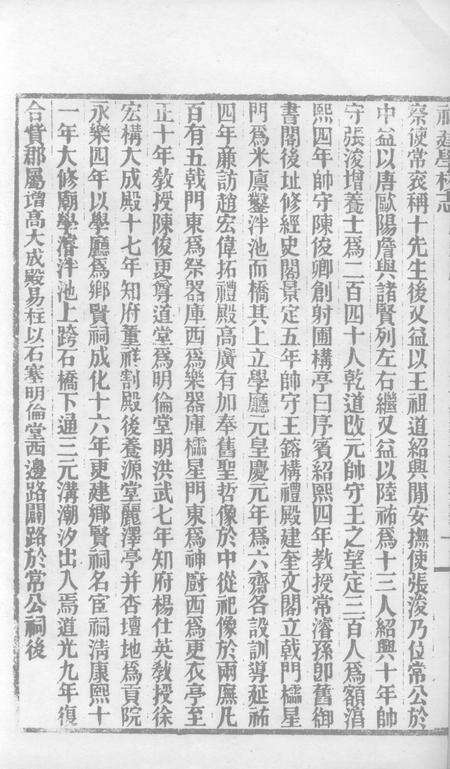 福建學校志
察使常袞稱十先生後又益以王祖道紹興間安撫使張浚乃位常公於
中益以唐歐陽詹與諸賢列左右繼又益以陸祐爲十三人紹興十年帥
守張浚增養士爲二百四十人乾道改元帥守王之望定三百人爲額淳
熙四年帥守陳俊卿創射圃構亭曰序賓紹熙四年教授常濬孫卽舊御
書閣後址修經史閣景定五年帥守王鎔構禮殿建奎文閣立戟門櫺星
門爲米廩鑿泮池而橋其上立學廳元皇慶元年爲六齋各設訓導延祐
四年廉訪趙宏偉拓禮殿高廣有加奉舊聖哲像於中從祀像於兩廡凡
百有五戟門東爲祭器庫西爲樂器庫櫺星門東爲神廚西爲更衣亭至
正十年教授陳俊更尊道堂爲明倫堂明洪武七年知府楊仕英教授徐
宏構大成殿十七年知府董祥割殿後養源堂麗澤亭并杏壇地爲貢院
永樂四年以學廳爲鄉賢祠成化十六年更建鄉賢祠名宦祠清康熙十
一年大修廟學濬泮池上跨石橋下通三元溝潮汐出入焉道光九年復
合貲郡屬增高大成殿易柱以石塞明倫堂西邊路闢路於常公祠後